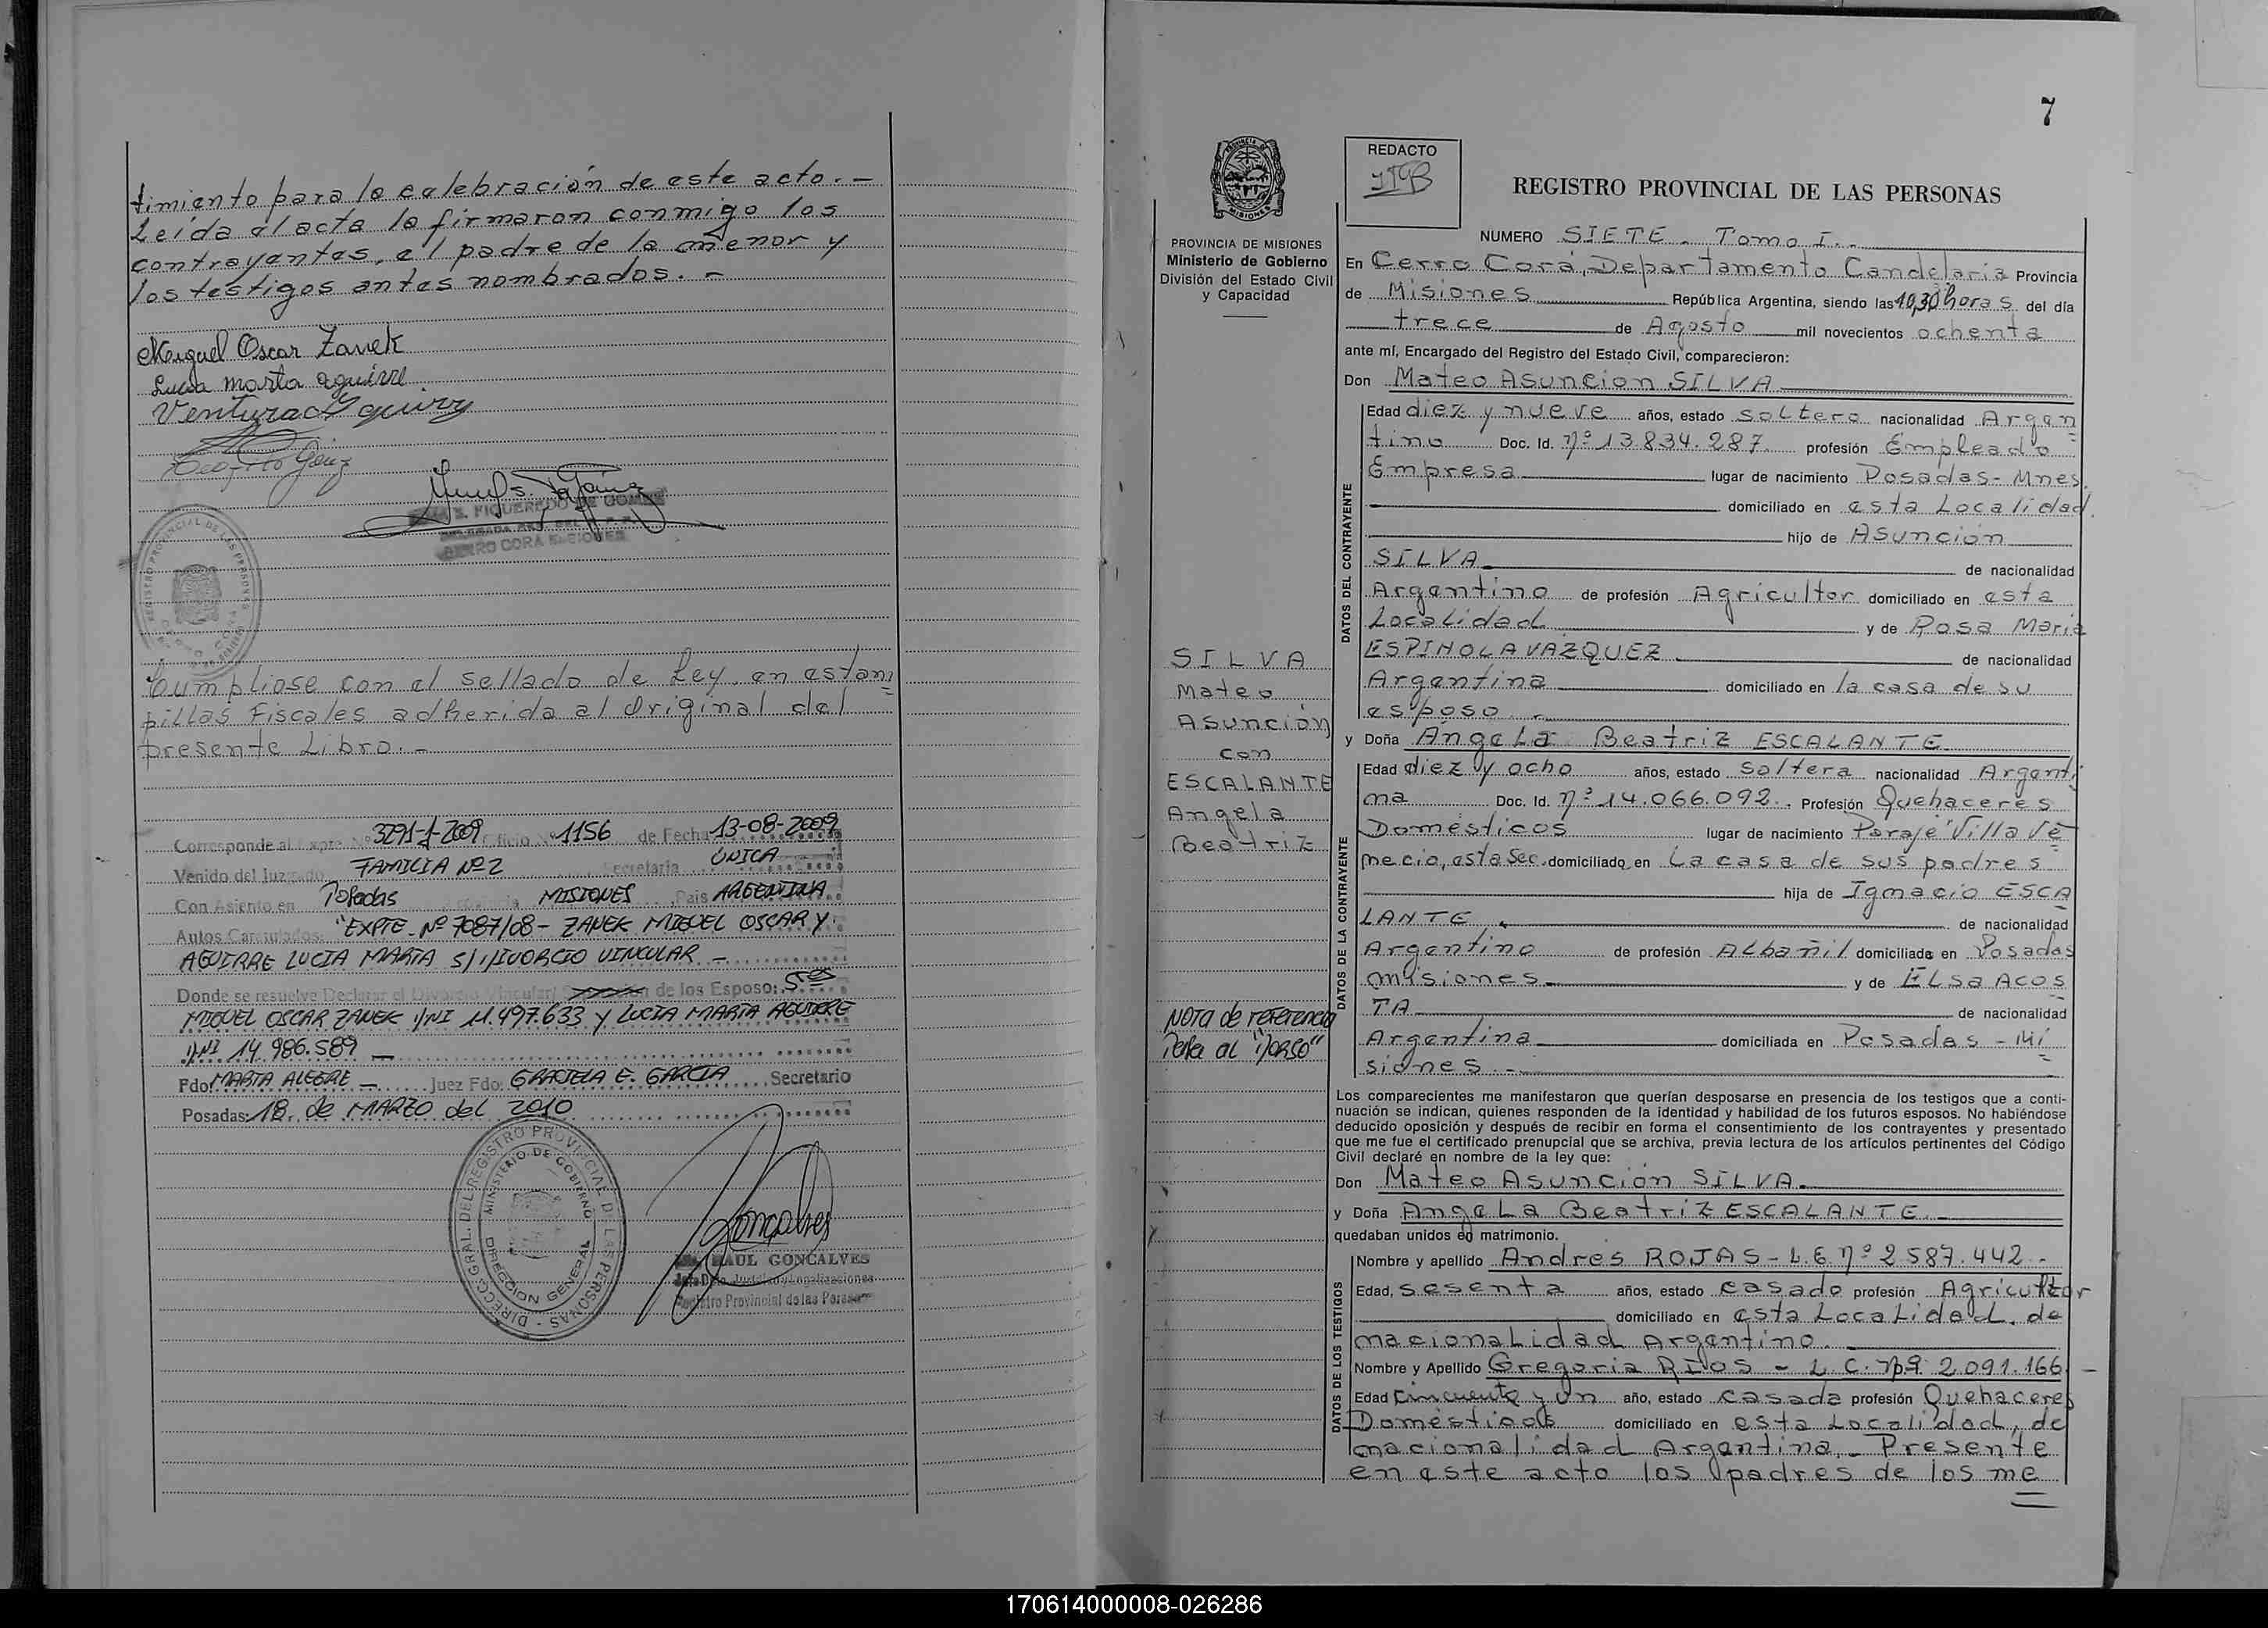 timiento para la celebración de este acto. -
Leída el acta la firmaron conmigo los
contrayentes, el padre de la menor y
los testigos antes nombrados. -
Miguel Oscar Zanek
Lucia Marta Aguirre.
Ventura
S. FIGUEREDO DE GOMEZ
CERRO CORA MISIONES
REGISTRO PROVINCIAL DE LAS PERSONAS
Cumpliose con el sellado de Ley, en estam
pillas Fiscales adherida al Original del
presente Libro. -
Corresponde al Expte. Nº 3291-J-2009 Oficio Nº 1156 de Fecha 13-08-2009
Venido del Juzgado FAMILIA Nº 2 Secretaría UNICA
Con Asiento en Posadas MISIONES, Pais ARGENTINA
Autos Caratulados: "EXPTE. Nº 7087/08 - ZANEK MIGUEL OSCAR Y
AGUIRRE LUCIA MARTA S/ DIVORCIO VINCULAR -
Donde se resuelve Declarar el Divorcio Vincular de los Esposo: Sres
MIGUEL OSCAR ZANEK DNI 11.497.633 Y LUCIA MARTA AGUIRRE
DNI 14.986.589 -
Fdo: MARTA ALEGRE - Juez Fdo. GRACIELA E. GARCIA Secretario
Posadas: 18, de MARZO del 2010
DIRECC. GRAL. DEL REGISTRO PROVINCIAL DE LAS PERSONAS -
MINISTERIO DE GOBIERNO
DIRECCION GENERAL
Goncalves
RAUL GONCALVES
Registro Provincial de las Personas
7
REDACTO
REGISTRO PROVINCIAL DE LAS PERSONAS
MISIONES
PROVINCIA DE MISIONES
Ministerio de Gobierno
División del Estado Civil
y Capacidad
NUMERO SIETE - Tomo I. -
En Cerro Corá, Departamento Candelaria Provincia
de Misiones República Argentina, siendo las 10,30 horas del día
trece de Agosto mil novecientos ochenta
ante mí, Encargado del Registro del Estado Civil, comparecieron:
Don Mateo Asuncion SILVA
DATOS DEL CONTRAYENTE
Edad diez y nueve años, estado soltero nacionalidad Argen
tino Doc. Id. nº 13.834.287. profesión Empleado
Empresa lugar de nacimiento Posadas - Mnes.
domiciliado en esta Localidad.
hijo de Asunción
SILVA de nacionalidad
Argentino de profesión Agricultor domiciliado en esta
Localidad y de Rosa María
ESPINOLA VAZQUEZ de nacionalidad
Argentina domiciliado en la casa de su
esposo. -
SILVA
Mateo
Asunción
con
ESCALANTE
Angela
Beatriz
y Doña Angela Beatriz ESCALANTE
DATOS DE LA CONTRAYENTE
Edad diez y ocho años, estado soltera nacionalidad Argenti
na Doc. Id. nº 14.066.092. Profesión Quehaceres
Domésticos lugar de nacimiento Paraje Villa Ve
necia, esta Sec. domiciliado en La casa de sus padres
hija de Ignacio ESCA
LANTE de nacionalidad
Argentino de profesión Albañil domiciliado en Posadas
Misiones y de ELsa ACOS
TA de nacionalidad
Argentina domiciliada en Posadas - Mi
siones. -
NOTA de referencia
Pasa al "Dorso"
Los comparecientes me manifestaron que querían desposarse en presencia de los testigos que a conti-
nuación se indican, quienes responden de la identidad y habilidad de los futuros esposos. No habiéndose
deducido oposición y después de recibir en forma el consentimiento de los contrayentes y presentado
que me fue el certificado prenupcial que se archiva, previa lectura de los artículos pertinentes del Código
Civil declaré en nombre de la ley que:
Don Mateo Asunción SILVA.
y Doña Angela Beatriz ESCALANTE. -
quedaban unidos en matrimonio.
DATOS DE LOS TESTIGOS
Nombre y apellido Andres ROJAS - L.E. nº 2.587.442. -
Edad, sesenta años, estado casado profesión Agricultor
domiciliado en esta Localidad, de
nacionalidad Argentino.
Nombre y Apellido Gregoria RIOS - L.C. nº 2.091.166. -
Edad cincuenta y un año, estado casada profesión Quehaceres
Domésticos domiciliado en esta Localidad, de
nacionalidad Argentina. - Presente
en este acto los padres de los me
170614000008-026286